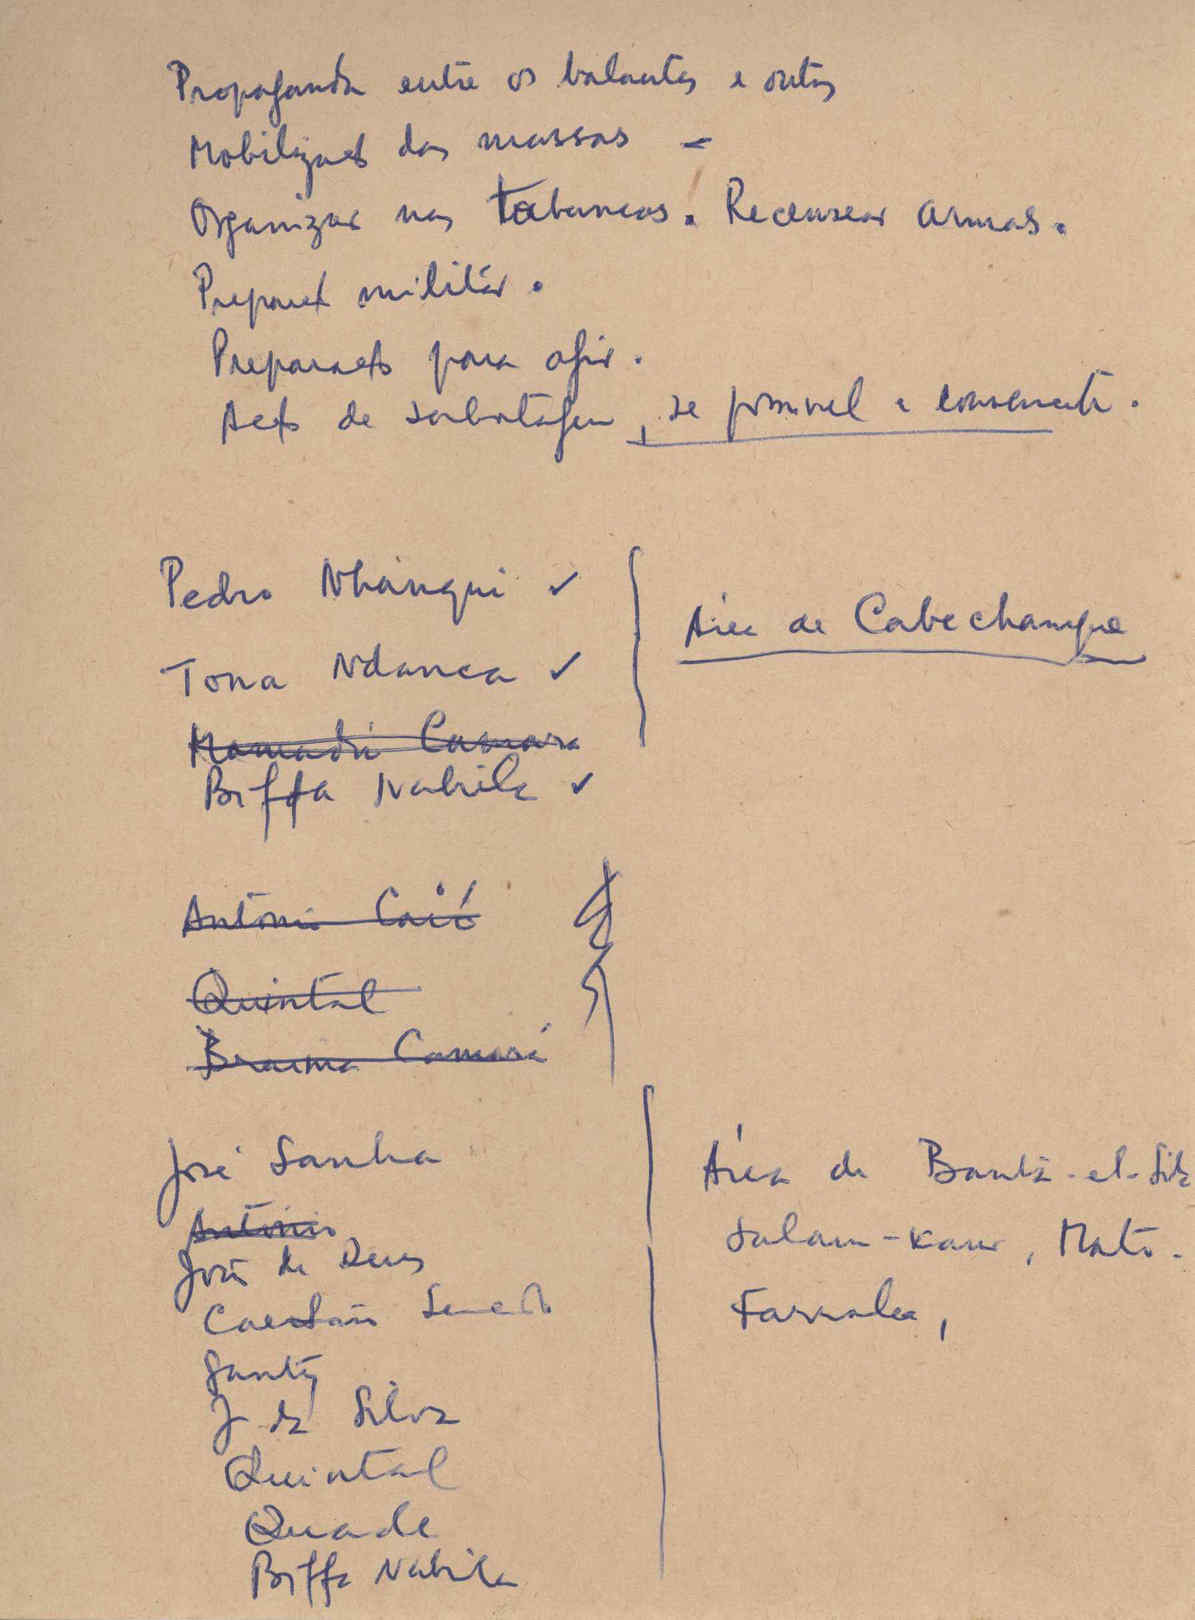 Propaganda entre os balantas e outros
Mobilização das massas -
Organizar nas tabancas. Recensear armas.
Preparação militar.
Preparação para agir.
Actos de sabotagem, se possível e conveniente.
Pedro Nhanqui ✓
Tona Ndanca ✓
Área de Cabechanque
Mamadú Camara
Biffa Nabila ✓
António Caió
Quintal
Braima Camará
José Sanha
Área de Bantã-el-Sila
António
João de Deus
Salam-Kaur, Mato-
Caetano Semedo
Farroba,
Santos
J da Silva
Quintal
Quade
Biffa Nabila